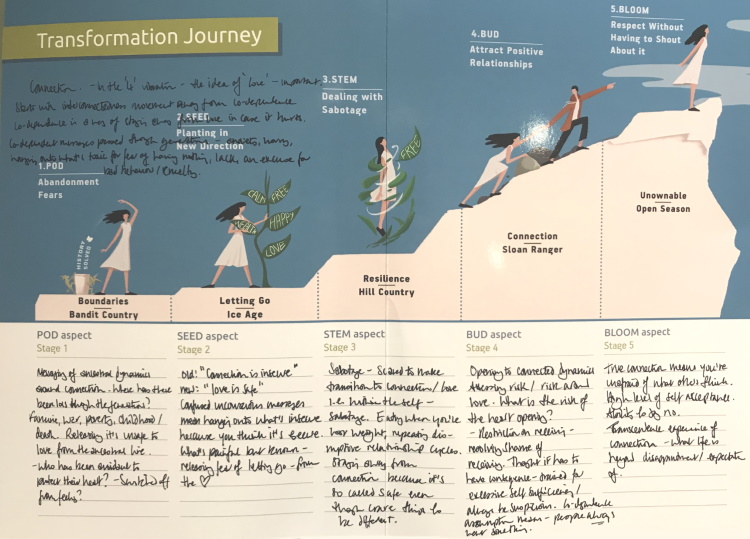 Transformation Journey
Connection. - in the 'e' vibration - the idea of 'love' - important.
Work with interconnectedness movement away from co-dependence
Co-dependence is a way of staying away from love in case it hurts.
Co-dependent messages passed through generations - anxiety, worry,
hanging onto what's toxic for fear of having nothing, lack, an excuse for
bad behaviour/cruelty.
1.POD
Abandonment
Fears
2.SEED
Planting in
New Direction
3.STEM
Dealing with
Sabotage
4.BUD
Attract Positive
Relationships
5.BLOOM
Respect Without
Having to Shout
About it
HISTORY
SOLVED
CALM
FREE
HEALTH
HAPPY
LOVE
FREE
Boundaries
Bandit Country
Letting Go
Ice Age
Resilience
Hill Country
Connection
Sloan Ranger
Unownable
Open Season
POD aspect
Stage 1
Merging of ancestral dynamics
around connection. Where has there
been loss through the generations?
Famine, war, poverty, childhood/
death. Releasing it's unsafe to
love from the ancestral line.
- Who has been avoidant to
protect their heart? - Switched off
from feelings?
SEED aspect
Stage 2
Old: "Connection is insecure"
new: "love is safe"
Confused unconscious messages
mean hanging onto what's insecure
because you think it's secure.
What's painful but known -
releasing fear of letting go - from
the ♡
STEM aspect
Stage 3
Sabotage - Scared to make
transition to connection/love
i.e. within the self -
Sabotage. Eating when you're
lose weight, repeating dis-
ruptive relationship cycles.
Staying away from
connection because it's
so called safe even
though crave things to
be different.
BUD aspect
Stage 4
Opening to connected dynamics
Assessing risk / risk around
love. What is the risk of
the heart opening?
- Restriction on receiving -
receiving. Thought it has to
have consequence -
excessive self sufficiency/
always be suspicious. Co-dependence
assumption means - people always
want something.
BLOOM aspect
Stage 5
True connection means you're
unafraid of what others think.
High level of self acceptance.
Ability to say no.
- Transcendent experience of
connection - what life is
beyond disappointment/expectations
of.